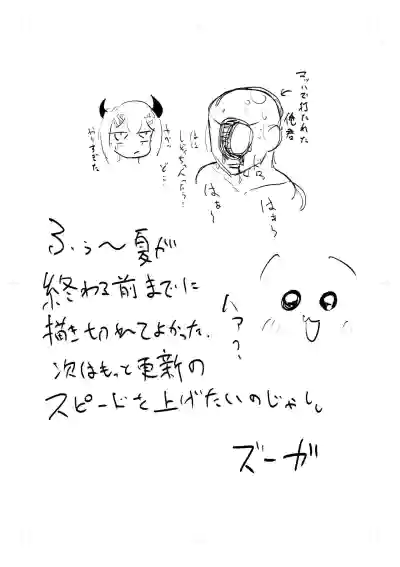 マッハで打たれた
俺君
やりすぎた
はぁ〜
はぁ〜
ふぅ〜夏が
終わる前までに
描き切れてよかった.
次はもっと更新の
スピードを上げたいのじゃし。
ハァ?
ズーガ